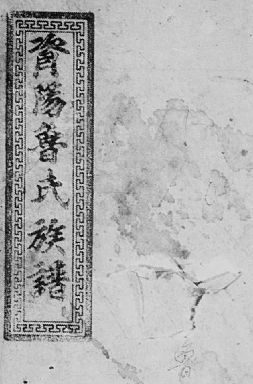 資陽魯氏族譜
魯